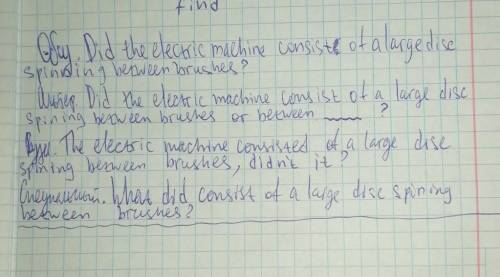 find
Общ. Did the electric machine consist of a large disc
spinding between brushes?
Did the electric machine consist of a large disc
spining between brushes or between ?
The electric machine consisted of a large disc
spining between brushes, didn't it?
Специальный. What did consist of a large disc spining
between brushes?